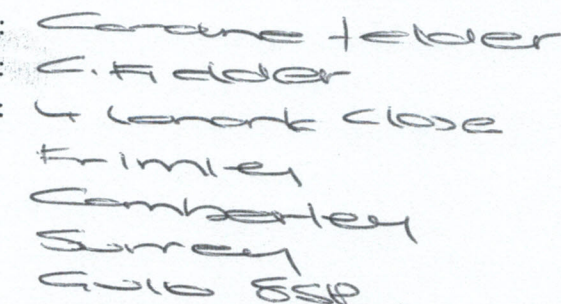 : Caroline Fielder
: C. Fielder
: 4 Lanark Close
Frimley
Camberley
Surrey
GU16 8SP